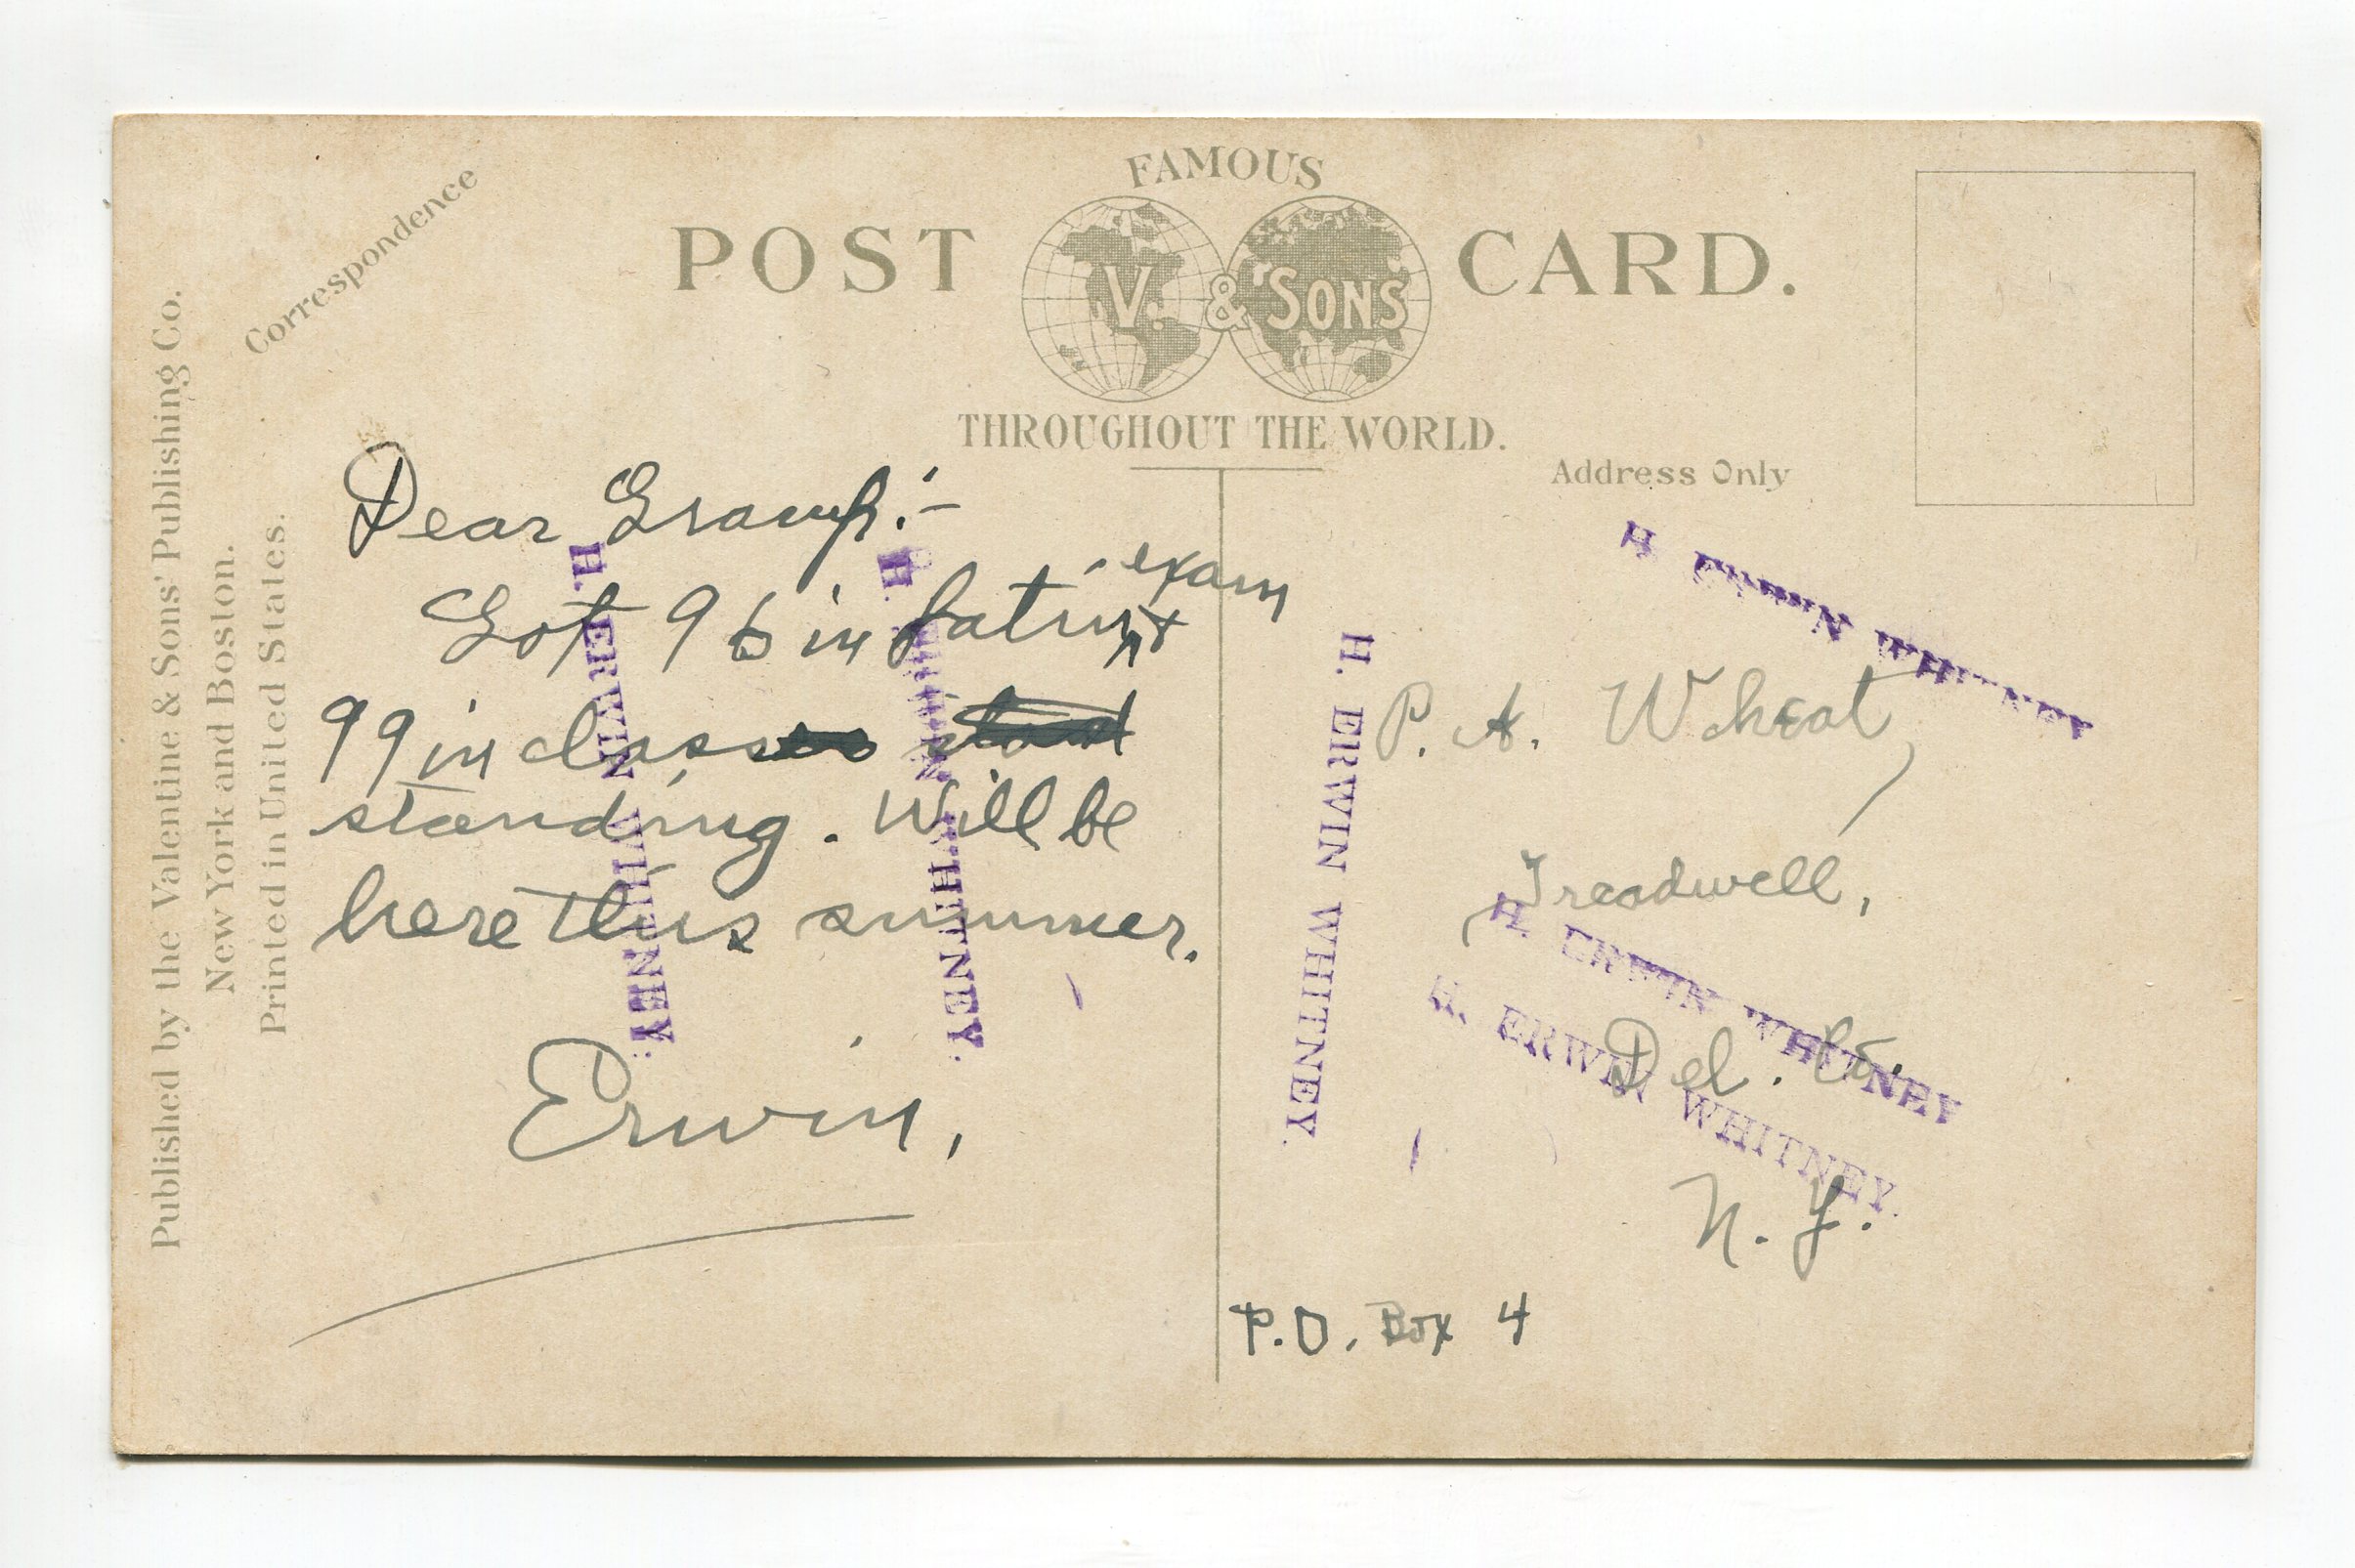 FAMOUS
POST V. & SONS CARD.
THROUGHOUT THE WORLD.
Correspondence
Address Only
Published by the Valentine & Sons' Publishing Co.
New York and Boston.
Printed in United States.
Dear Gramp:-
Got 96 in Latin exam &
99 in class
standing. Will be
here this summer.
Erwin,
P. A. Wheat,
Treadwell,
Del. Co.
N. Y.
P.O. Box 4
H. ERWIN WHITNEY.
H. ERWIN WHITNEY.
H. ERWIN WHITNEY.
H. ERWIN WHITNEY
H. ERWIN WHITNEY
H. ERWIN WHITNEY.